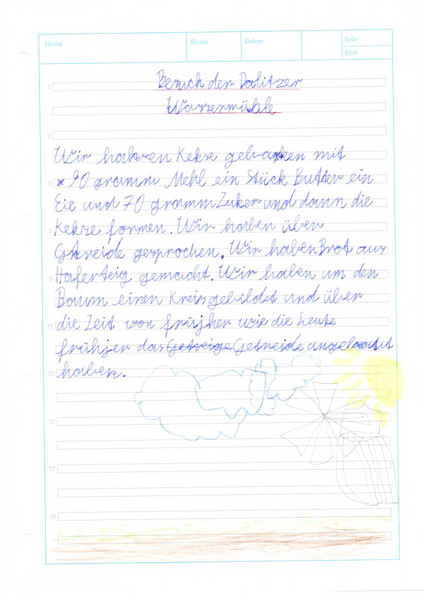 Name Klasse Datum Seite
Blatt
Besuch der Dölitzer
Wassermühle
Wir haben Kekse gebacken mit
90 gramm Mehl ein Stück Butter ein
Eie und 70 gramm Zuker und dann die
Kekse formen. Wir haben über
Getreide gesprochen. Wir haben Brot aus
Haferteig gemacht. Wir haben um den
Baum einen Kreis gebildet und über
die Zeit von früjher wie die Leute
frühjer das Getreige Getreide angebaut
haben.